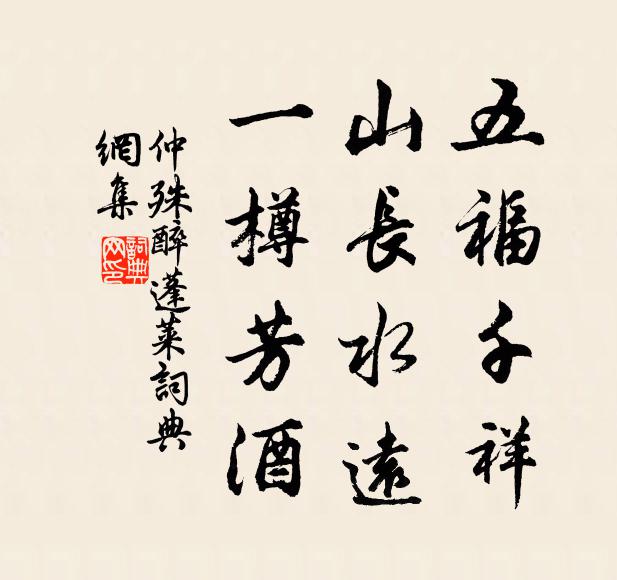 五福千祥
山長水遠
一樽芳酒
仲殊醉蓬萊詞典
網集
詞典
网印